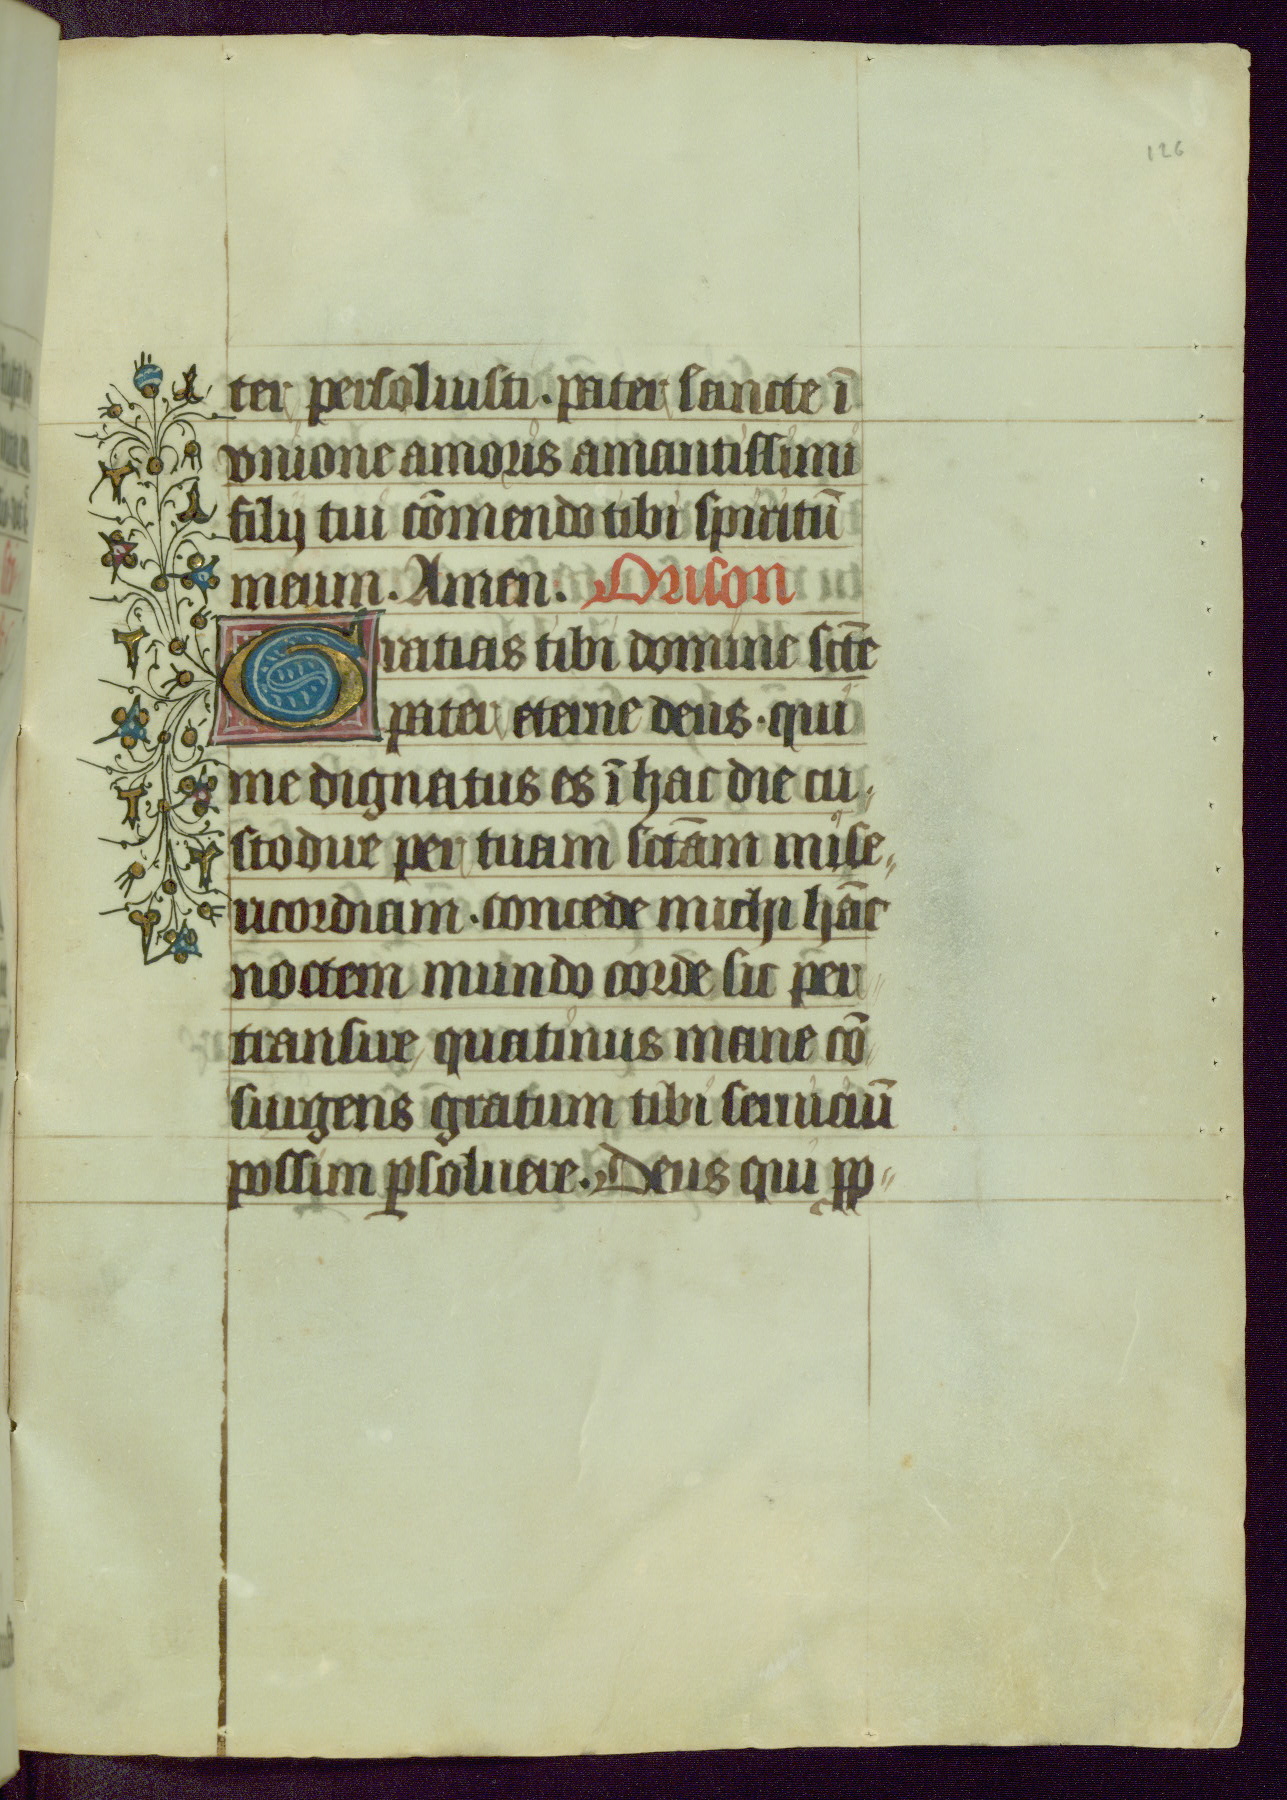 126
ter persoluisti. pater sancte ī
vnione amoris amantissimi
filij tui cōmendo tibi spiritū
meum. Amen. Orison
Gratias tibi domine sctē
pater eterne deus. qui
me dignatus es ī hac die cu
stodire per tuam sctām mise
ricordiam. concede michi hāc
noctem mundo corde sic per
transire quatinus mane cō
surgens gratum tibi seruiciū
possim ꝑsoluere. Deus qui ꝓp